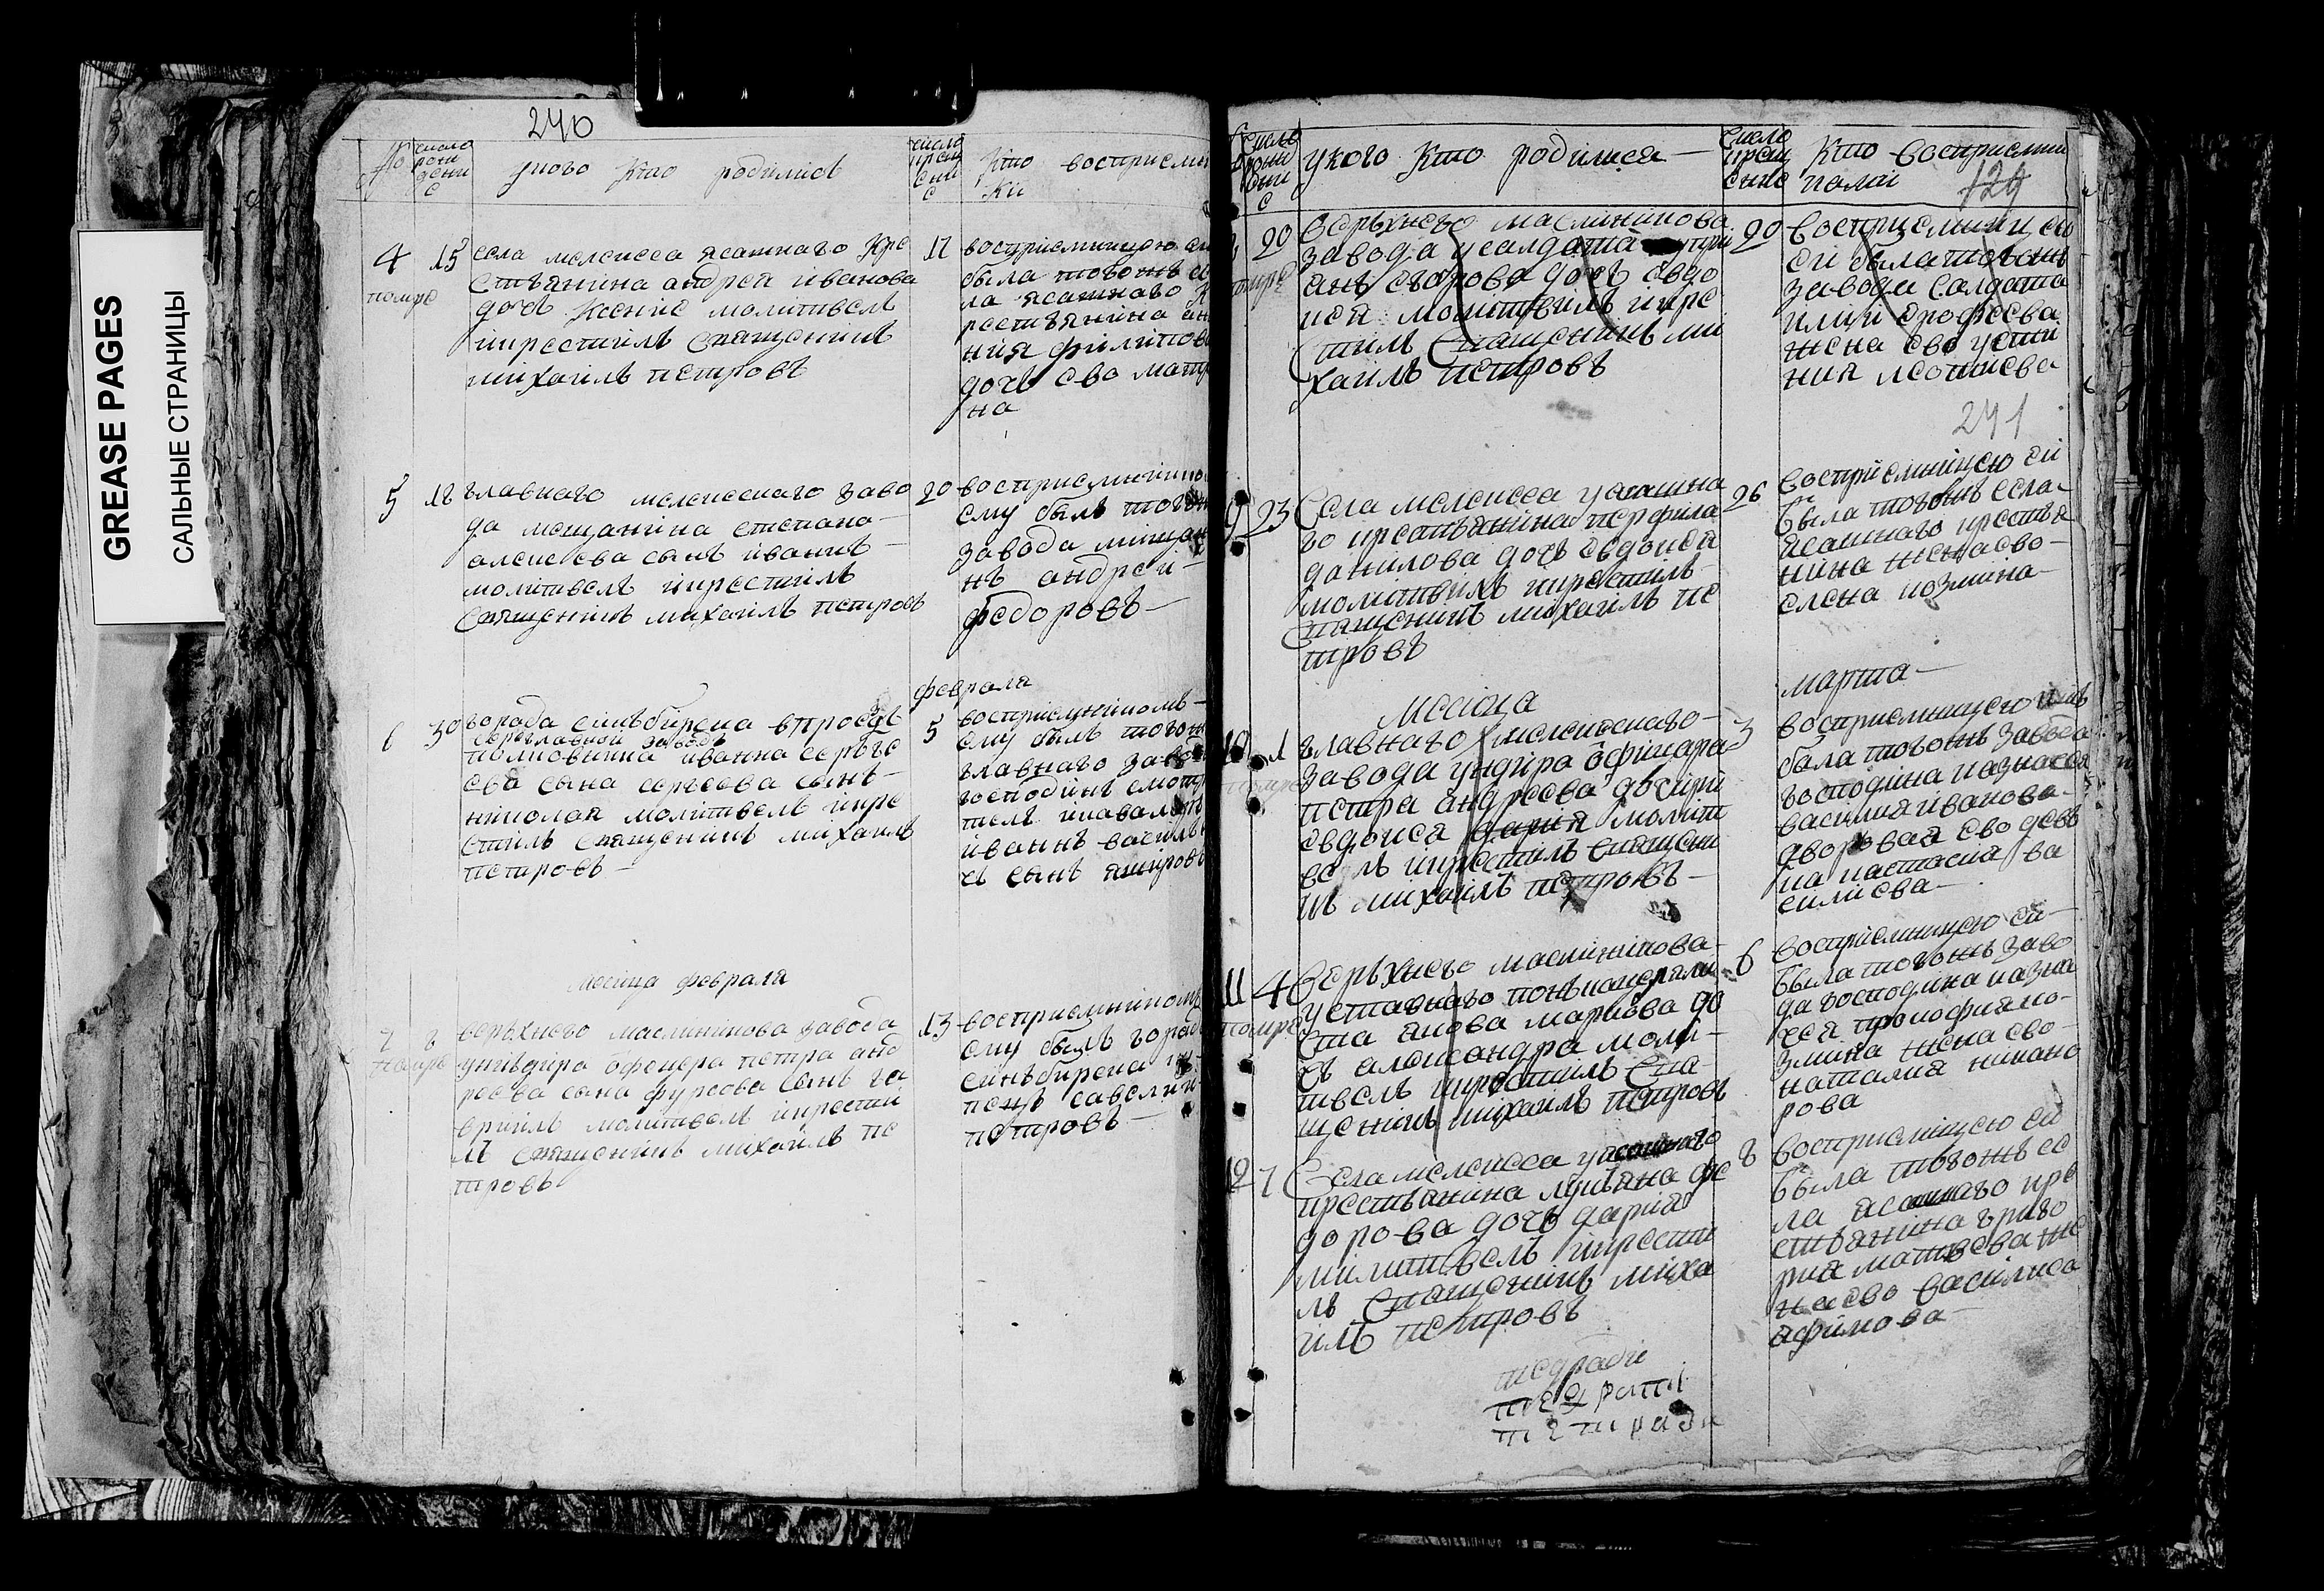 GREASE PAGES
САЛЬНЫЕ СТРАНИЦЫ
240
№
число
рож
дени
е
у кого кто родились
число
крещ
ени
е
кто восприемни
ки
4
помре
15
села мелекеса ясашнаго кре
стьянина андрея иванова
дочь ксение молитвелъ
икрестилъ священникъ
михаилъ петровъ
17
восприемницею
была тогожъ
ла ясашнаго
рестьянина
ния филипов
дочь ево матр
на
5
18
главнаго мелекескаго заво
да мещанина степана
алексеева сынъ иванъ
молитвелъ икрестилъ
священникъ михаилъ петровъ
20
восприемником
ему былъ того
завода мещан
нъ андреи
федоровъ
6
30
города синъбирска
полковника иванна сергее
ева сына сынъ
николаи молитвелъ икре
стилъ священникъ михаилъ
петровъ
февраля
5
восприемникомъ
ему былъ тогож
главнаго
господинъ смотр
тель
иваннъ василь
чъ сынъ
месеца февраля
7
помре
8
верьхнего масленикова завода
унтеръ офецера петра анд
реева сына фурсова сынъ га
вриилъ молитвелъ икрести
лъ священникъ михаилъ пе
тровъ
13
восприемникомъ
ему былъ город
синъбирска
савелии
петровъ
число
рожд
ени
е
у кого кто родилися
число
крещ
ение
кто восприемни
129
20
помре
верьхнего масленикова
завода усалдата
анъ егорова дочь евдо
кея молитвилъ икре
стилъ священникъ ми
хаилъ петровъ
20
восприемницею
еи была тогожъ
завода салдата
ильи ерофеева
жена ево усти
ния леонтиева
241
9
23
села мелекеса уясашна
го крестьянина перфила
данилова дочь евдокея
молитвилъ икрестилъ
священникъ михаилъ пе
тровъ
26
восприемницею еи
была тогожъ села
ясашнаго крестья
нина жена ево
елена козмина
месяца
марта
10
помре
1
главнаго мелекескаго
завода ундира офицера
петра андреева дочири
евдокея дария молит
велъ икрестилъ священи
къ михаилъ петровъ
3
восприемницею имъ
была тогожъ завода
господина казначея
василия иванова
дворовая ево девъ
ка настасия ва
силиева
11
помре
4
верьхнего масленикова
уставнаго
якова маркова до
чъ александра моли
твелъ икрестилъ свя
щенникъ михаилъ петровъ
6
восприемницею еи
была тогожъ заво
да господина казна
чея прокофия ко
змина жена ево
наталия никано
рова
12
7
села мелекеса уясашнаго
крестьянина лукьяна фе
дорова дочь дария
милитвелъ икрести
лъ священникъ миха
илъ петровъ
8
восприемницею еи
была тогожъ се
ла ясашнаго кре
стьянина григо
рия матвеева же
на ево василиса
афимова
тедради